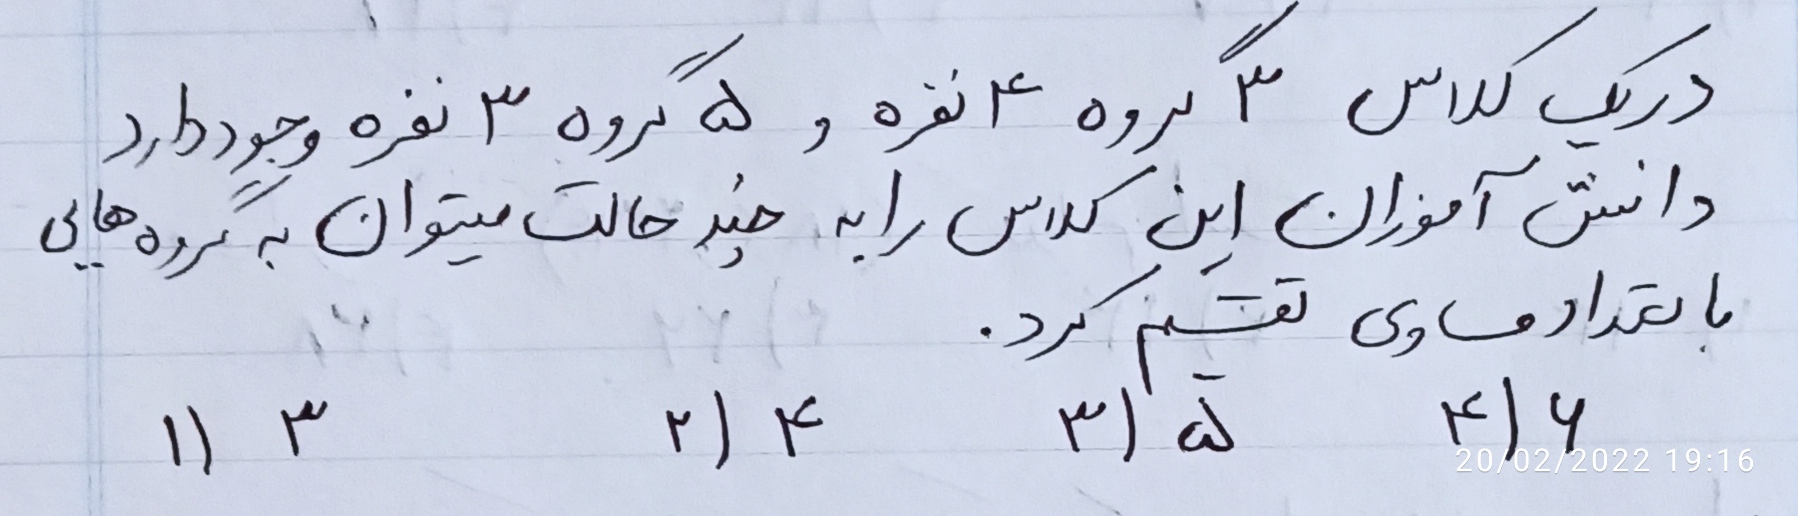 در یک کلاس ۳ گروه ۴ نفره و ۵ گروه ۳ نفره وجود دارد
دانش آموزان این کلاس را به چند حالت میتوان به گروه هایی
با تعداد مساوی تقسیم کرد.
۱) ۳ ۲) ۴ ۳) ۵ ۴) ۶
20/02/2022 19:16